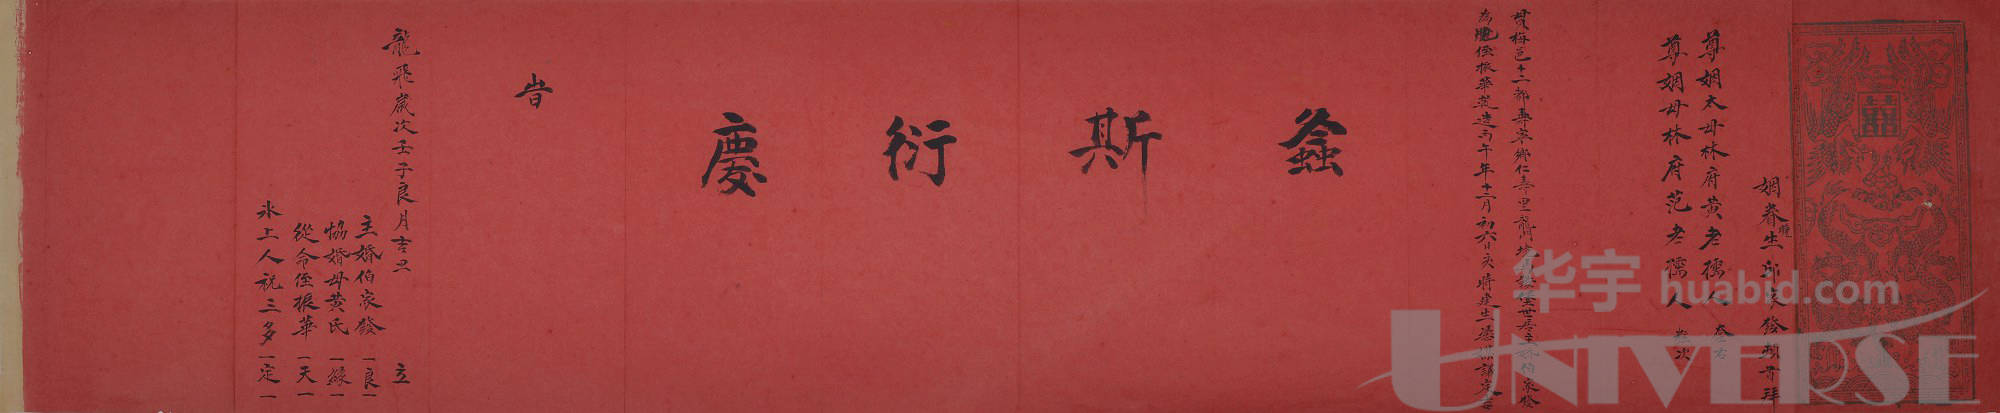 囍
姻眷生邱家發頓首拜
尊姻太母林府黃老孺人
尊姻母林府范老孺人
貫梅邑十二都壽寧鄉仁壽里
為胞侄振華 造丙午年十二月初六日亥時建生
螽斯衍慶
旹
龍飛歲次壬子良月吉旦 立
主婚伯家發 一良一
協婚母黃氏 一緣一
從命侄振華 一天一
氷上人祝三多 一定一
华宇 huabid.com
UNIVERSE